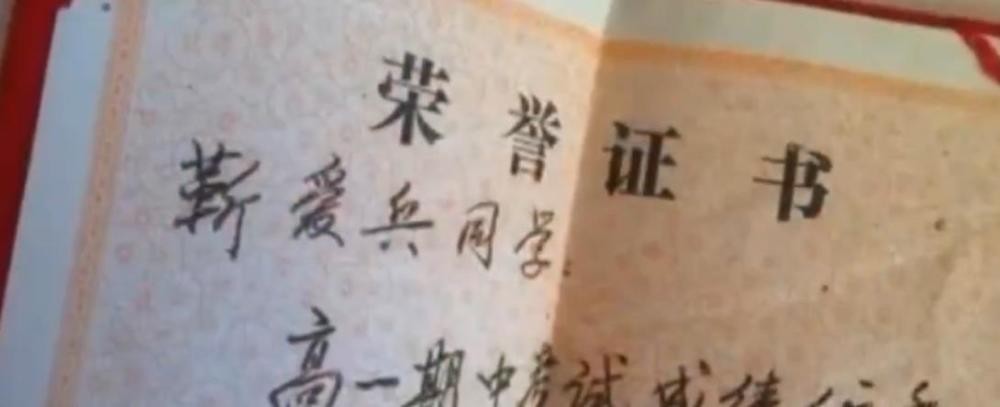 荣誉证书
靳爱兵同学.
高一期中考试成绩